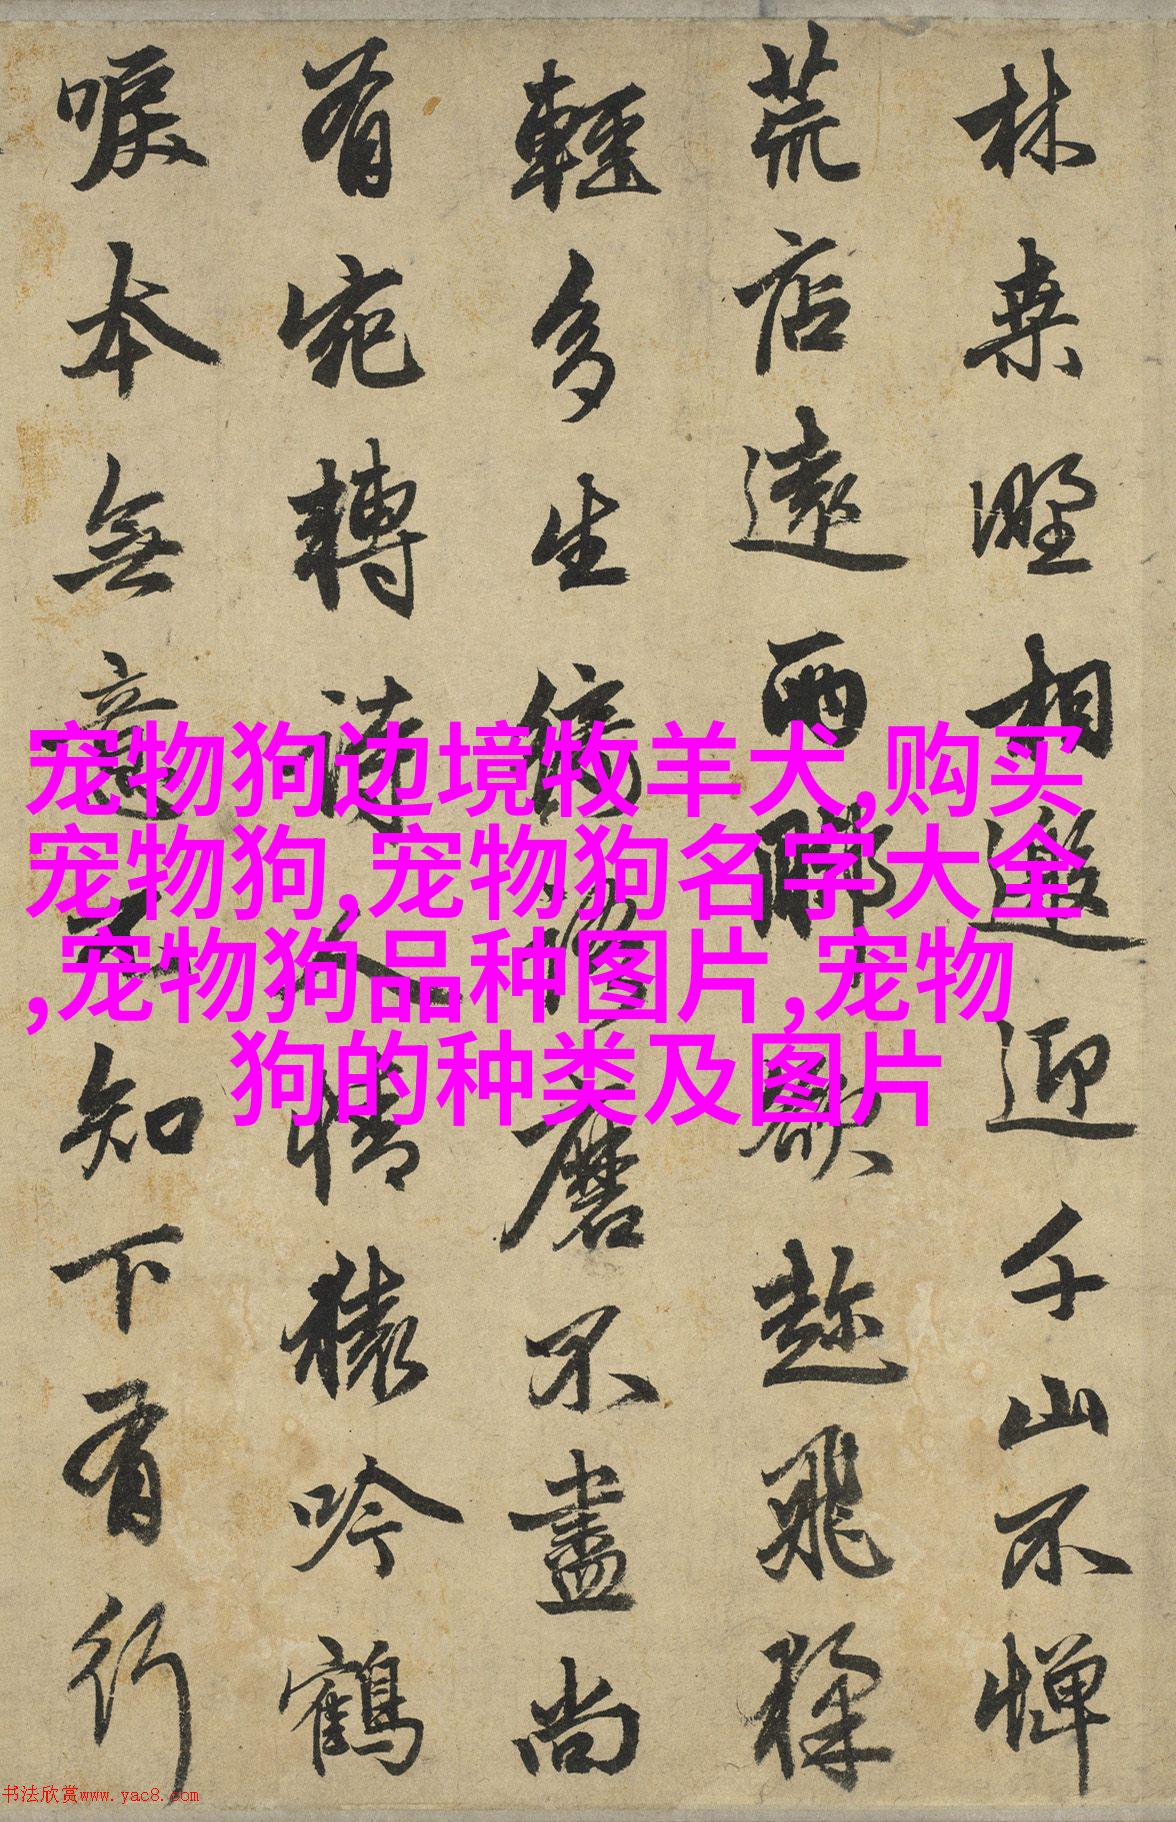 林桒墅相邀迎千山不惮
荒店遠兩聯欲趂飛猱
輕多生債消磨不盡尚
有宛轉詩人情猿吟鶴
唳本無意不知下有行
宠物狗边境牧羊犬,购买
宠物狗,宠物狗名字大全
,宠物狗品种图片,宠物
狗的种类及图片
书法欣赏www.yac8.com